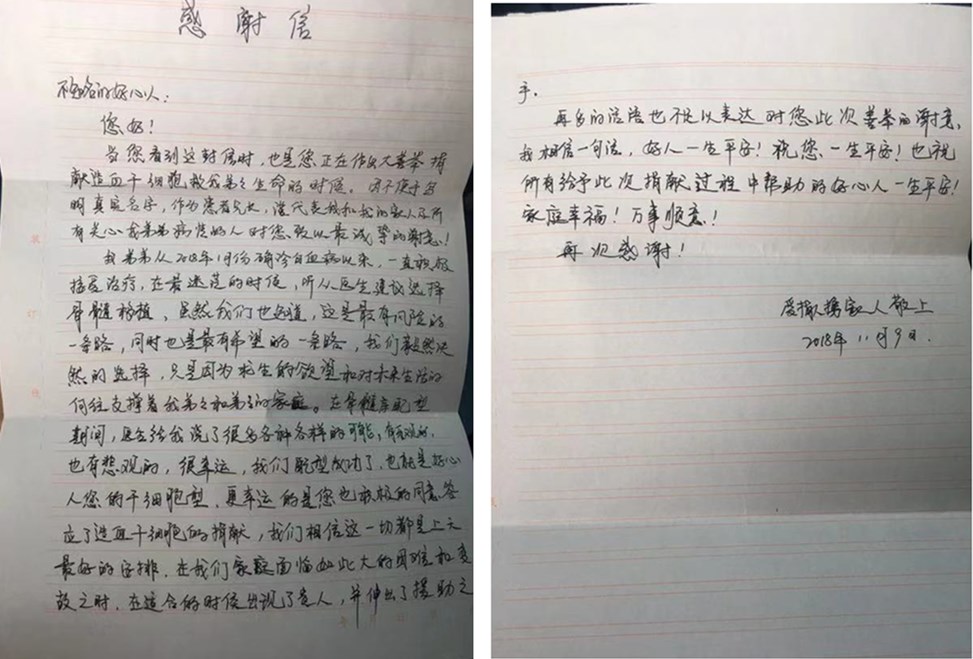 感谢信
不知名的好心人：
您好！
当您看到这封信时，也是您正在作出大善举 捐
献造血干细胞救我弟弟生命的时候。因不便于写
明真实名字，作为患者兄长，谨代表我和我的家人及所
有关心我弟弟病情的人对您致以最诚挚的谢意！
我弟弟从2018年1月份确诊白血病以来，一直积极
接受治疗，在最迷茫的时候，听从医生建议选择
骨髓移植，虽然我们也知道，这是最有风险的
一条路，同时也是最有希望的一条路，我们毅然决
然的选择，只是因为求生的欲望和对未来生活的
向往支撑着我弟弟和弟弟的家庭。在骨髓库配型
期间，医生给我说了很多各种各样的可能，有乐观的，
也有悲观的，很幸运，我们配型成功了，也就是好心
人您的干细胞型，更幸运的是您也积极的同意答
应了造血干细胞的捐献，我们相信这一切都是上天
最好的安排，在我们家庭面临如此大的困难和变
故之时，在适合的时候出现了贵人，并伸出了援助之
手。
再多的话语也不足以表达对您此次善举的谢意，
我相信一句话，好人一生平安！祝您一生平安！也祝
所有给予此次捐献过程中帮助的好心人一生平安！
家庭幸福！万事顺意！
再次感谢！
受捐人携家人敬上
2018年11月9日．